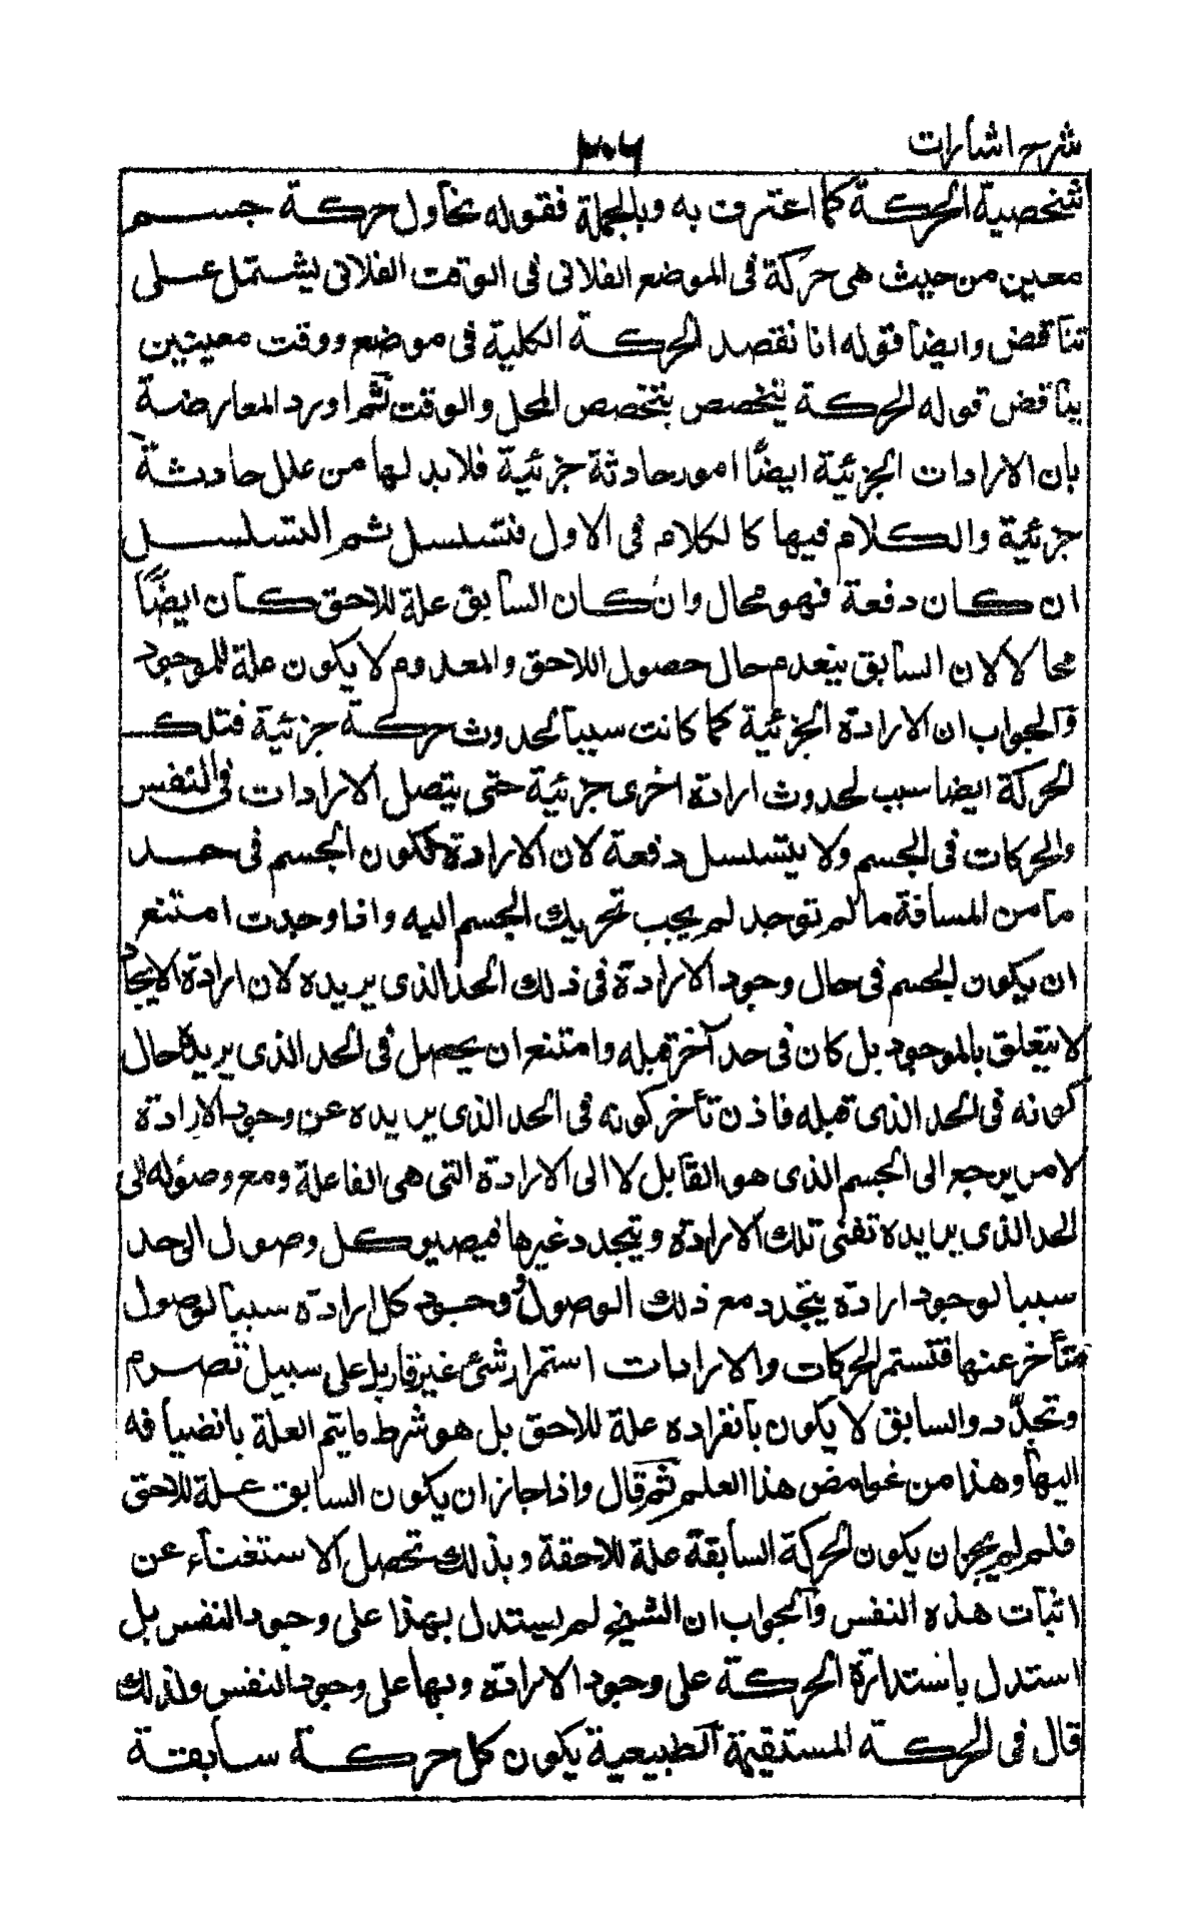 شرح اشارات
٢٠٦
شخصية الحركة كما اعترف به وبالجملة فقوله نحاول حركة جسم
معين من حيث هى حركة فى الموضع الفلانى فى الوقت الفلانى ليشتمل على
تناقض وايضا فقوله انا نقصد الحركة الكلية فى موضع ووقت معينين
يناقض قوله الحركة يتخصص بتخصص المحل والوقت ثم اورد المعارضة
بان الارادات الجزئية ايضًا امور حادثة جزئية فلا بد لها من علل حادثة
جزئية والكلام فيها كالكلام فى الاول فتسلسل ثم التسلسل
ان كان دفعة فهو محال وان كان السابق علة للاحق كان ايضًا
محالا لان السابق ينعدم حال حصول اللاحق والمعدوم لا يكون علة للموجود
والجواب ان الارادة الجزئية كما كانت سببا لحدوث حركة جزئية فتلك
الحركة ايضا سبب لحدوث ارادة اخرى جزئية حتى يتصل الارادات فى النفس
والحركات فى الجسم ولا يتسلسل دفعة لان الارادة لكون الجسم فى حد
ما من المسافة ما لم توجد لم يجب تحريك الجسم اليه واذا وجدت امتنع
ان يكون الجسم فى حال وجود الارادة فى ذلك الحد الذى يريده لان ارادة الايجاد
لا تتعلق بالموجود بل كان فى حد آخر قبله وامتنع ان يحصل فى الحد الذى يريده حال
كونه فى الحد الذى قبله فاذن تأخر كونه فى الحد الذى يريده عن وجود الارادة
لامر يرجع الى الجسم الذى هو القابل لا الى الارادة التى هى الفاعلة ومع وصوله الى
الحد الذى يريده تفنى تلك الارادة ويتجدد غيرها فيصير كل وصول الى حد
سببا لوجود ارادة يتجدد مع ذلك الوصول ووجود كل ارادة سببا لوصول
متأخر عنها فتستمر الحركات والارادات استمرار شئ غير قار بل على سبيل تصرم
وتجدّد والسابق لا يكون بانفراده علة للاحق بل هو شرط ما يتم العلة بانضيافه
اليها وهذا من غوامض هذا العلم ثم قال واذا جاز ان يكون السابق علة للاحق
فلم لم يجز ان يكون الحركة السابقة علة للاحقة وبذلك تحصل الاستغناء عن
اثبات هذه النفس والجواب ان الشيخ لم يستدل بهذا على وجود النفس بل
استدل باستدارة الحركة على وجود الارادة وبها على وجود النفس ولذلك
قال فى الحركة المستقيمة الطبيعية يكون كل حركة سابقة